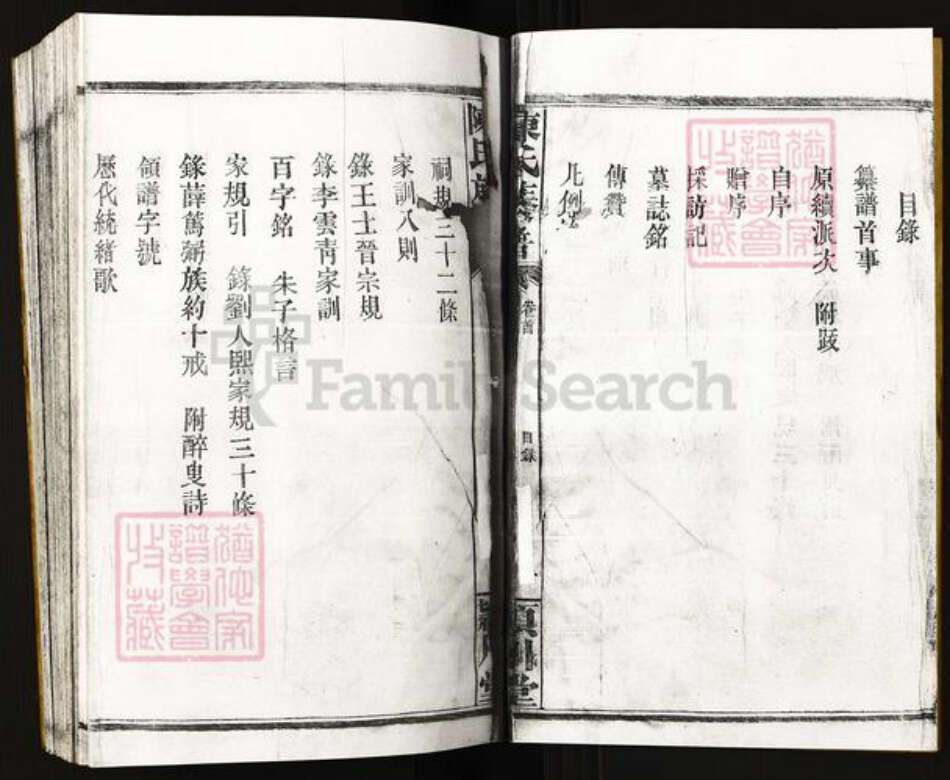 目錄
纂譜首事
原續派次 附跋
自序
贈序
採訪記
墓誌銘
傳贊
凡例
陳氏族譜
卷首
目錄
堂
祠規三十二條
家訓八則
錄王士晉宗規
錄李雲青家訓
百字銘 朱子格言
家規引 錄劉人熙家規三十條
錄薛萬粥族約十戒 附醉叟詩
領譜字號
歷代統緒歌
FamilySearch
譜學會
收藏